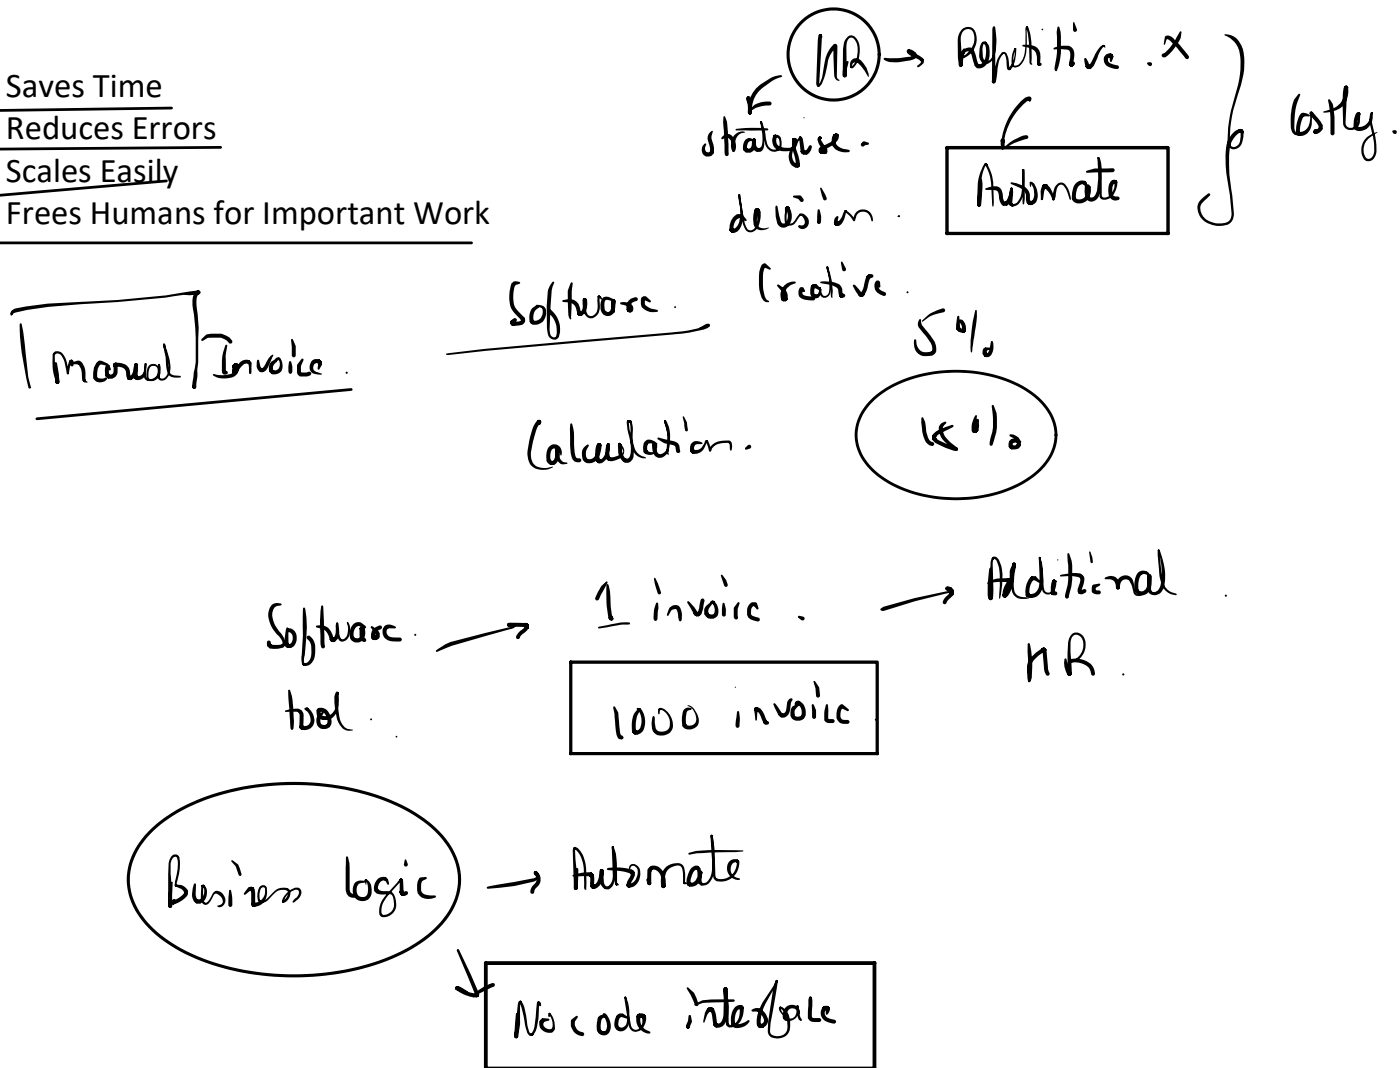 Saves Time
Reduces Errors
Scales Easily
Frees Humans for Important Work
HR → Repetitive. x
Costly.
strategise.
Automate
decision.
Creative.
Software.
Manual Invoice.
5%
Calculation.
18%
Software → 1 invoice. → Additional
tool.
HR.
1000 invoice
Business logic → Automate
No code interface